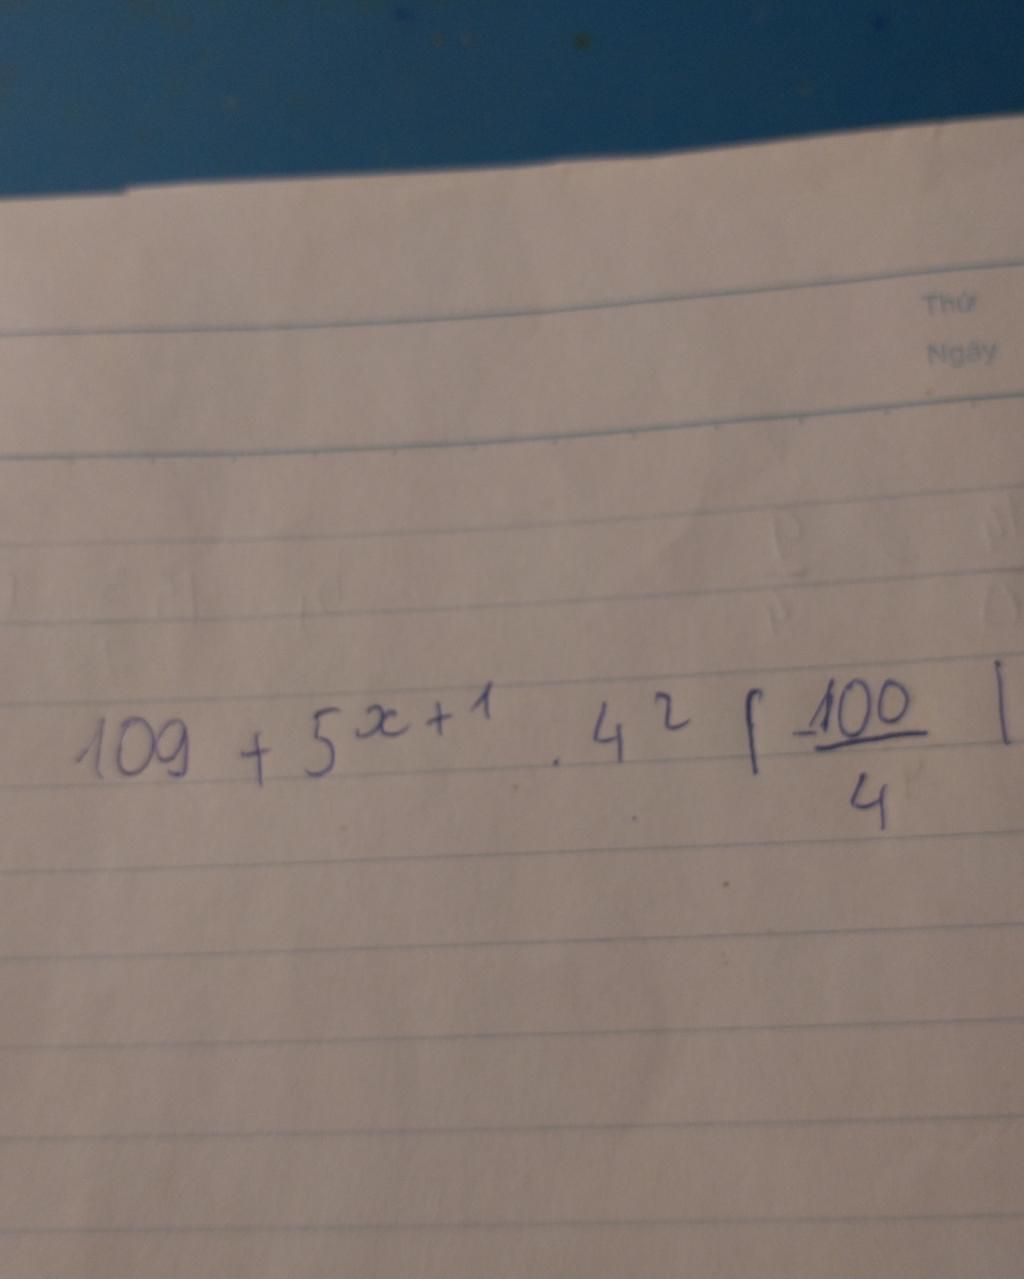 Thứ
Ngày
109 + 5^{x+1} . 4^2 | \frac{-100}{4} |